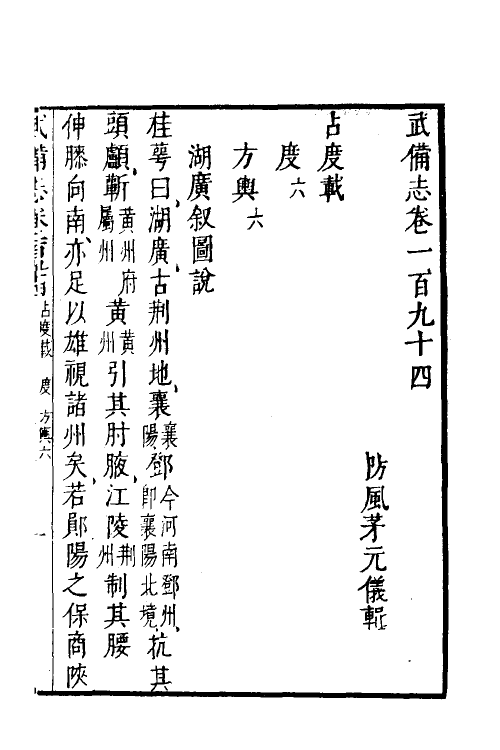 武備志卷一百九十四
防風茅元儀輯
占度載
度六
方輿六
湖廣叙圖說
桂萼曰湖廣古荆州地襄襄陽鄧今河南鄧州即襄陽北境抗其
頭顱蘄黃州府屬州黃黃州引其肘腋江陵荆州制其腰
伸膝向南亦足以雄視諸州矣若鄖陽之保商陝
武備志卷 占度載 度 方輿六 一